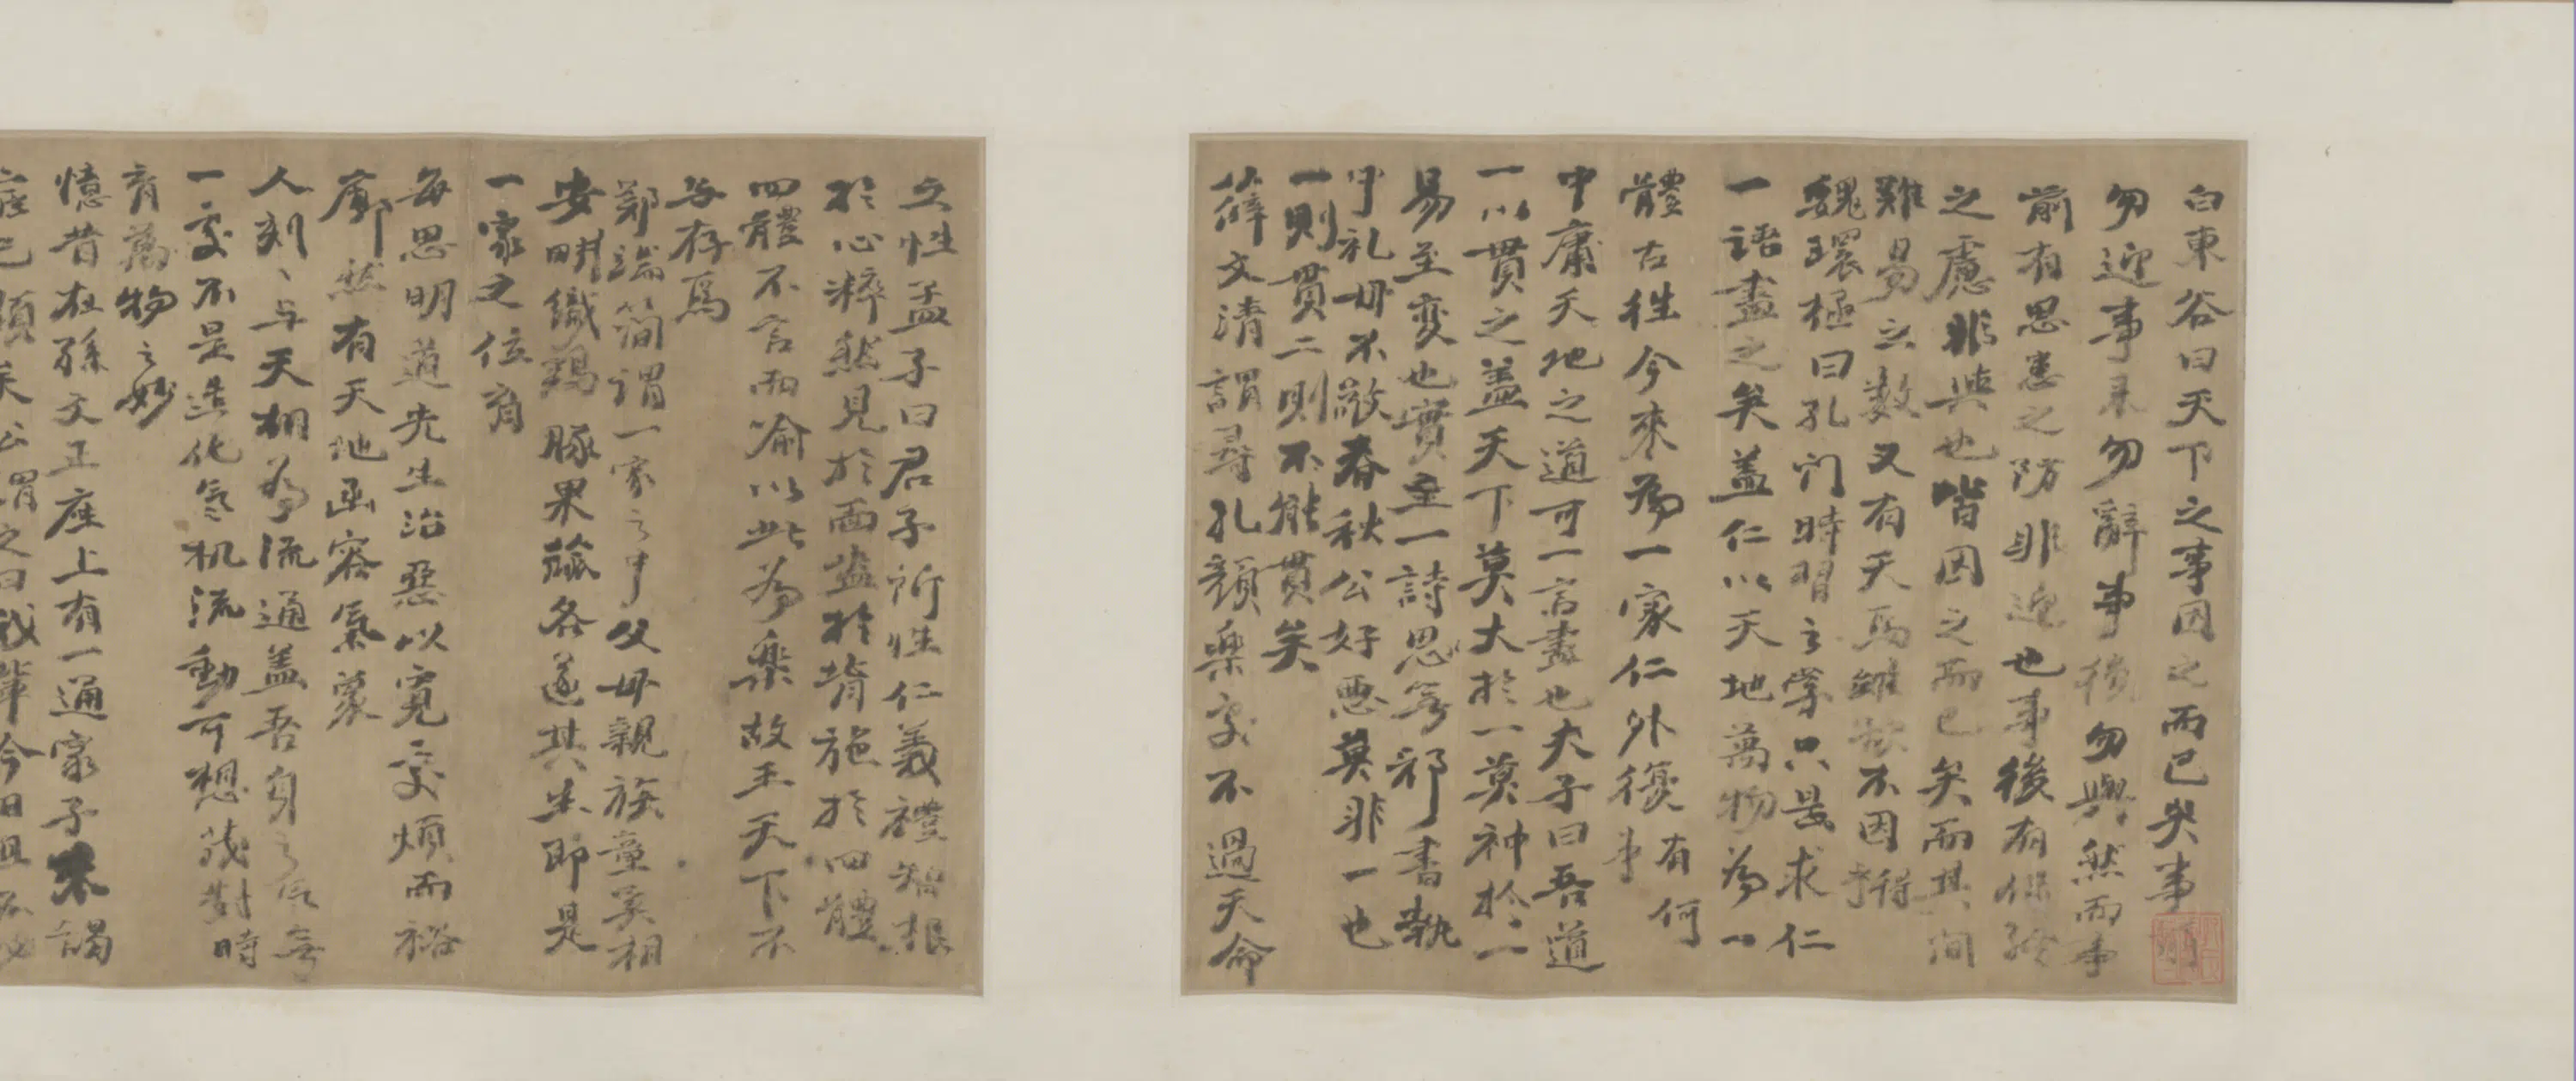 白東谷曰天下之事因之而已矣事
勿迎事来勿辭事後勿與然而事
前有思患之防非迎也事後有
之慮非與也皆因之而已矣而其间
難易之数又有天焉雖欲不因得
魏環極曰孔门時習之学只是求仁
一語盡之矣盖仁以天地萬物為一
體古往今來為一家仁外復有何
事
中庸天地之道可一言盡也夫子曰吾道
一以貫之盖天下莫大於一莫神於一
易至变也實至一詩思無邪書執
中礼毋不敬春秋公好惡莫非一也
一則貫二則不能貫矣
薛文清謂尋孔顏樂處不過天命
之性孟子曰君子所性仁義禮智根
於心粹然見於面盎於背施於四體
四體不言而喻以此為樂故王天下不
与存焉
鄭端簡謂一家之中父母親族童奚相
安明織鷄豚果蓏各遂其生即是
一家之位育
每思明道先生治惡以寬處煩而裕
廓然有天地函容氣象
人刻刻与天相為流通盖吾身之氣無
一處不是造化气机流動可想茂對時
育萬物之妙
憶昔在孫文正座上有一通家子来謁
矣公謂之曰我輩今日且